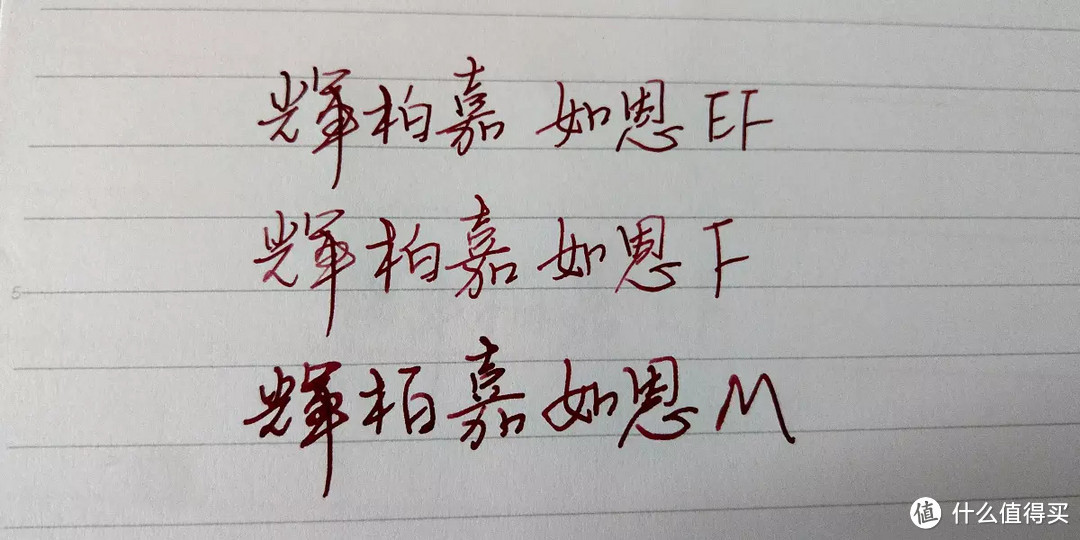 輝柏嘉 如恩 EF
輝柏嘉 如恩 F
5
輝柏嘉 如恩 M
值 什么值得买